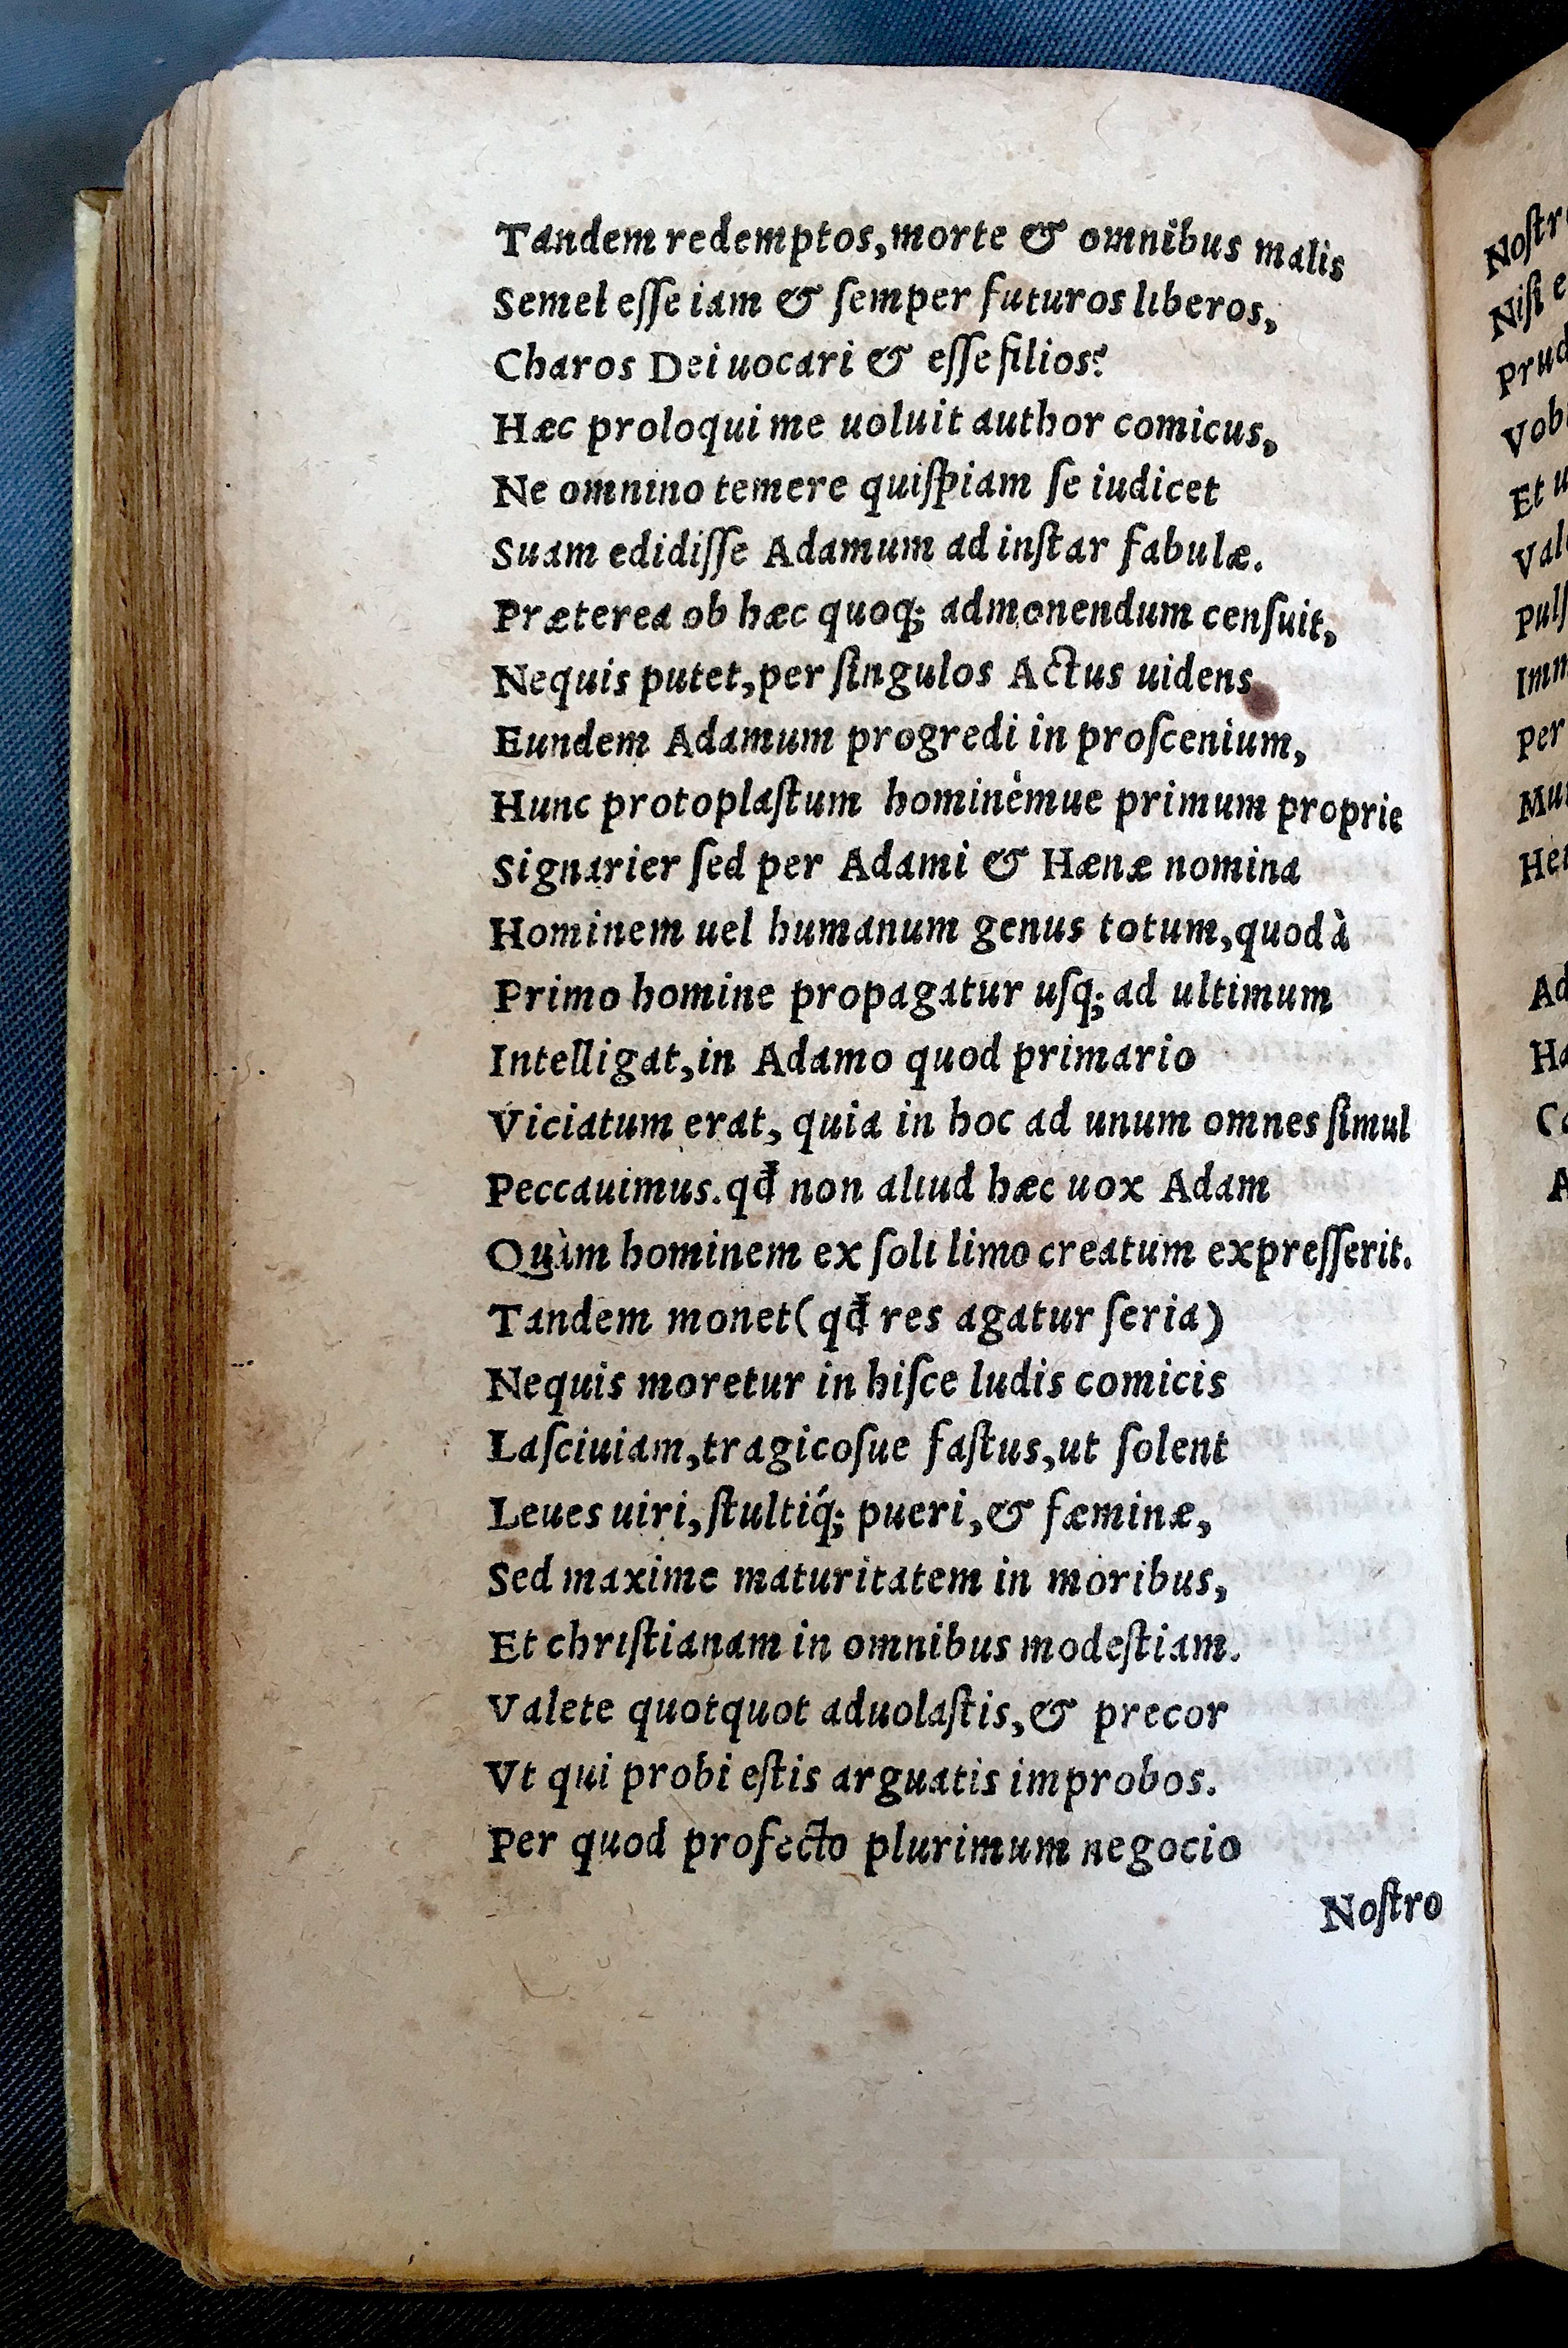 Tandem redemptos, morte & omnibus malis
Semel eſſe iam & ſemper futuros liberos,
Charos Dei uocari & eſſe filios?
Hæc proloqui me uoluit author comicus,
Ne omnino temere quiſpiam ſe iudicet
Suam edidiſſe Adamum ad inſtar fabulæ.
Præterea ob hæc quoq; admonendum cenſuit,
Nequis putet, per ſingulos Actus uidens
Eundem Adamum progredi in proſcenium,
Hunc protoplaſtum hominémue primum proprie
Signarier ſed per Adami & Hænæ nomina
Hominem uel humanum genus totum, quod à
Primo homine propagatur uſq; ad ultimum
Intelligat, in Adamo quod primario
Viciatum erat, quia in hoc ad unum omnes ſimul
Peccauimus. qđ non aliud hæc uox Adam
Quàm hominem ex ſoli limo creatum expreſſerit.
Tandem monet (qđ res agatur ſeria)
Nequis moretur in hiſce ludis comicis
Laſciuiam, tragicoſue faſtus, ut ſolent
Leues uiri, ſtultiq́; pueri, & fæminæ,
Sed maxime maturitatem in moribus,
Et chriſtianam in omnibus modeſtiam.
Valete quotquot aduolaſtis, & precor
Vt qui probi eſtis arguatis improbos.
Per quod profecto plurimum negocio
Noſtro
Noſtr
Niſi e
Prud
Vob
Et u
Val
Pulſ
Imm
Per
Mu
Het
Ad
Ha
Ca
A